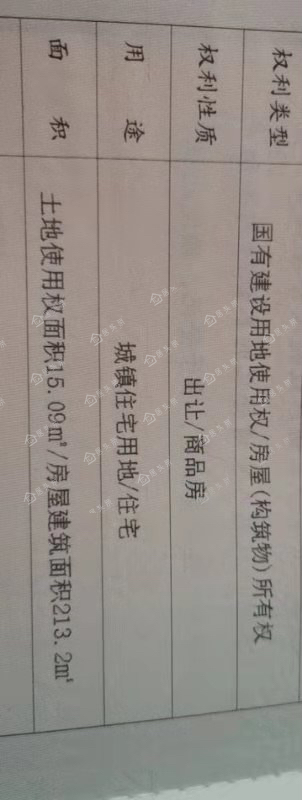 权利类型 国有建设用地使用权/房屋(构筑物)所有权
权利性质 出让/商品房
用途 城镇住宅用地/住宅
面积 土地使用权面积15.09㎡/房屋建筑面积213.2㎡